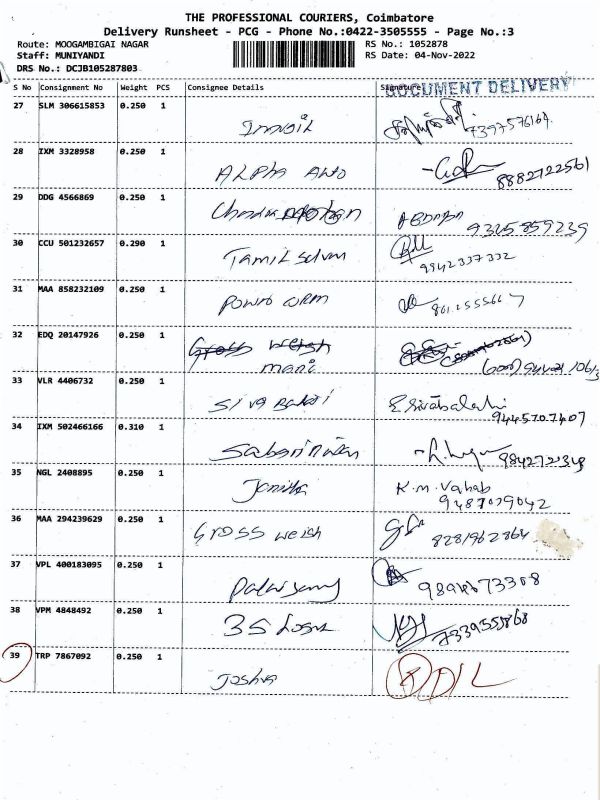 THE PROFESSIONAL COURIERS, Coimbatore
Delivery Runsheet - PCG - Phone No.:0422-3505555 - Page No.:3
Route: MOOGAMBIGAI NAGAR RS No.: 1052878
Staff: MUNIYANDI RS Date: 04-Nov-2022
DRS No.: DCJB105287803
DOCUMENT DELIVERY
S No Consignment No Weight PCS Consignee Details Signature
27 SLM 306615853 0.250 1
7397576164
28 IXM 3328958 0.250 1
ALPha Auto
8882722561
29 DDG 4566869 0.250 1
9325859239
30 CCU 501232657 0.290 1
Tamil selvan
9842337332
31 MAA 858232109 0.250 1
32 EDQ 20147926 0.250 1
Gross weigh
mani
33 VLR 4406732 0.250 1
Siva Balaji E. Sivabalaji
9445707407
34 IXM 502466166 0.310 1
35 NGL 2408895 0.250 1
K.M. Vahab
9487079042
36 MAA 294239629 0.250 1
Gross weigh
8281962864
37 VPL 400183095 0.250 1
38 VPM 4848492 0.250 1
7339555868
39 TRP 7867092 0.250 1
Joshua
DIL